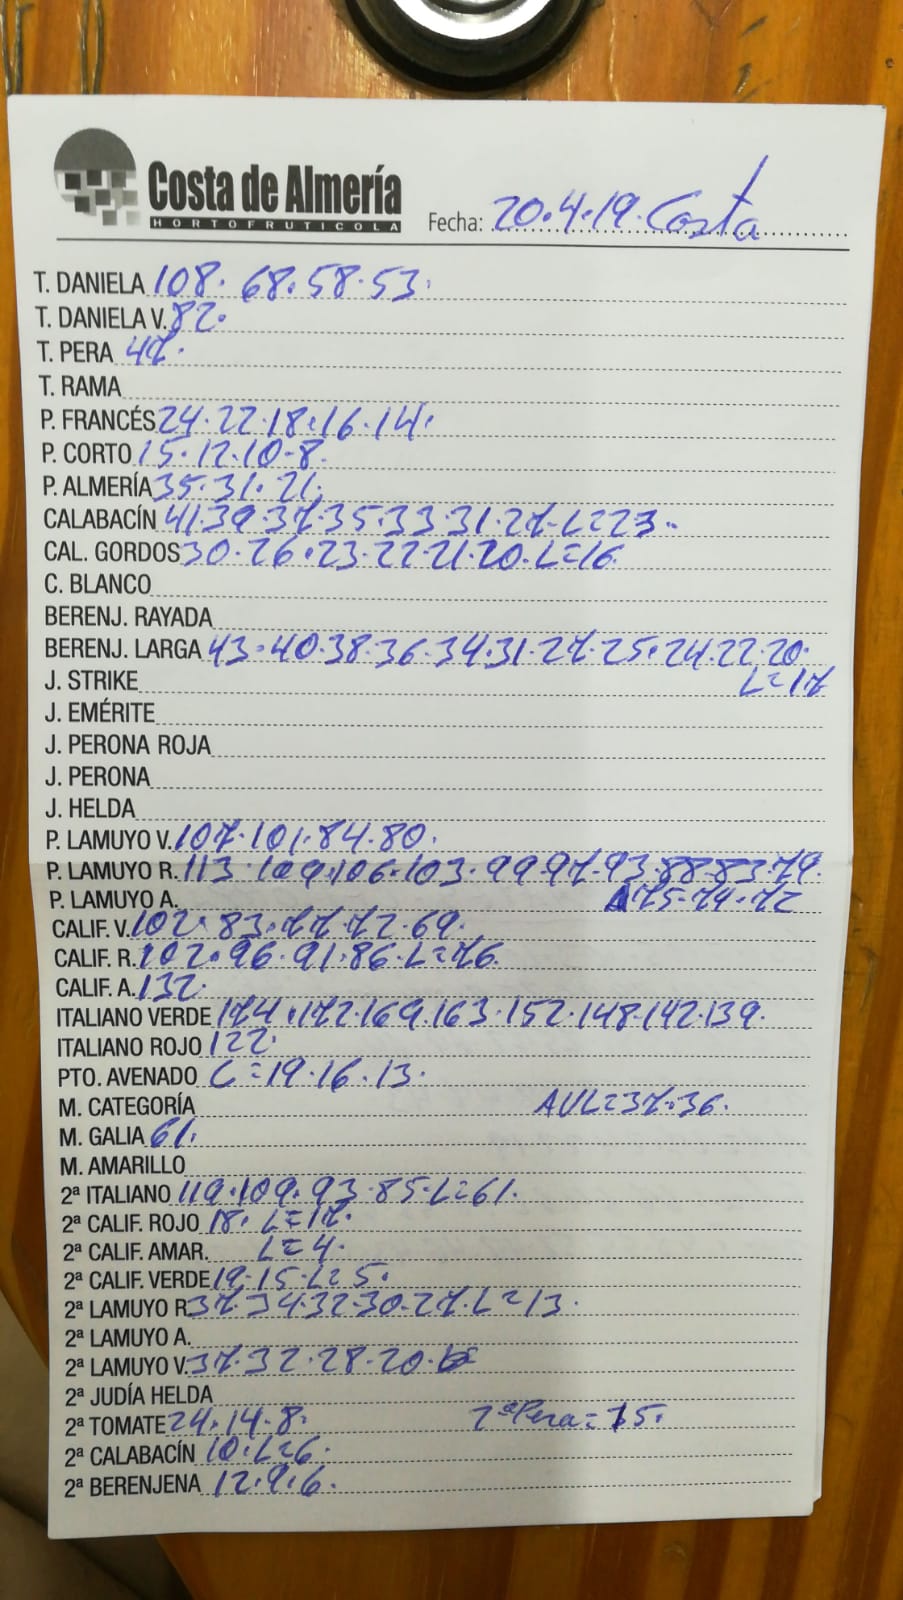 Costa de Almería
HORTOFRUTICOLA
Fecha: 20.4.19. Costa
T. DANIELA 108. 68. 58. 53.
T. DANIELA V. 82.
T. PERA 47.
T. RAMA
P. FRANCÉS 24. 22. 18. 16. 14.
P. CORTO 15. 12. 10. 8.
P. ALMERÍA 35. 31. 21.
CALABACÍN 41. 39. 37. 35. 33. 31. 27. L=23.
CAL. GORDOS 30. 26. 23. 22. 21. 20. L=16.
C. BLANCO
BERENJ. RAYADA
BERENJ. LARGA 43. 40. 38. 36. 34. 31. 27. 25. 24. 22. 20.
J. STRIKE L=17
J. EMÉRITE
J. PERONA ROJA
J. PERONA
J. HELDA
P. LAMUYO V. 107. 101. 84. 80.
P. LAMUYO R. 113. 109. 106. 103. 99. 97. 93. 88. 83. 79.
P. LAMUYO A. 75. 74. 72
CALIF. V. 102. 83. 77. 72. 69.
CALIF. R. 102. 96. 91. 86. L=76.
CALIF. A. 132.
ITALIANO VERDE 174. 172. 169. 163. 152. 148. 142. 139.
ITALIANO ROJO 122.
PTO. AVENADO C=19. 16. 13.
M. CATEGORÍA AUL=37. 36.
M. GALIA 61.
M. AMARILLO
2ª ITALIANO 119. 109. 93. 85. L=61.
2ª CALIF. ROJO 18. L=17.
2ª CALIF. AMAR. L=4.
2ª CALIF. VERDE 19. 15. L=5.
2ª LAMUYO R. 37. 34. 32. 30. 27. L=13.
2ª LAMUYO A.
2ª LAMUYO V. 37. 32. 28. 20.
2ª JUDÍA HELDA
2ª TOMATE 24. 14. 8. 2ª Pera=15.
2ª CALABACÍN 10. L=6.
2ª BERENJENA 12. 9. 6.